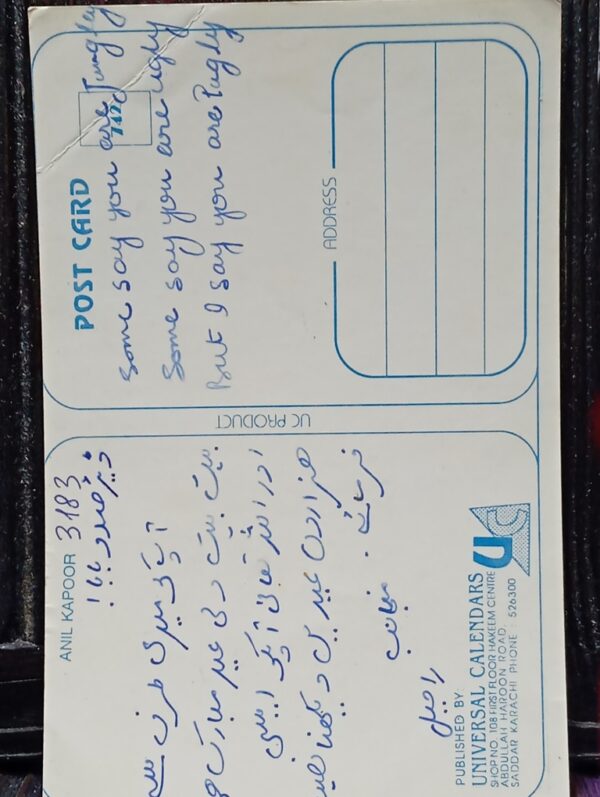 ANIL KAPOOR 3183
ڈیئر
آپ کو میری طرف سے
بہت بہت دلی عید مبارک ہو
اور اللہ تعالیٰ آپکو ایسی
ہزاروں عیدیں دیکھنا نصیب
فرمائے۔
منجانب
راحیل
PUBLISHED BY:
UNIVERSAL CALENDARS
SHOP NO. 108 FIRST FLOOR HAKEEM CENTRE
ABDULLAH HAROON ROAD,
SADDAR KARACHI PHONE : 526300
UC
UC PRODUCT
POST CARD
747
Some say you are Jungly
Some say you are ugly
But I say you are Pugly
ADDRESS